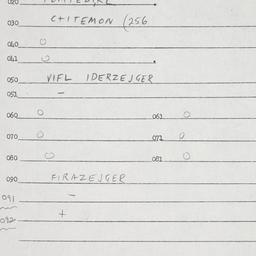 020
030 C+ITEMON (256
040 O
041 O
050 VIFL IDERZEJGER
051 -
060 O 061 O
070 O 071 O
080 O 081 O
090 FIRAZEJGER
091 -
092 +